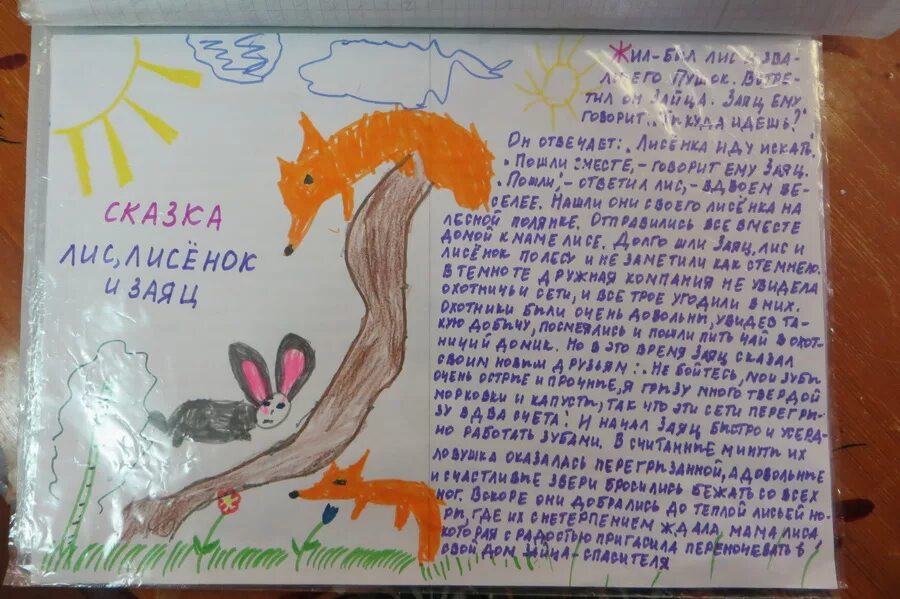 СКАЗКА
ЛИС, ЛИСЁНОК
И ЗАЯЦ
ЖИЛ-БЫЛ ЛИС И ЗВА-
ЛИ ЕГО ПУШОК. ВСТРЕ-
ТИЛ ОН ЗАЙЦА. ЗАЯЦ ЕМУ
ГОВОРИТ: "ТЫ КУДА ИДЕШЬ?"
ОН ОТВЕЧАЕТ: "ЛИСЁНКА ИДУ ИСКАТЬ".
"ПОШЛИ ВМЕСТЕ, - ГОВОРИТ ЕМУ ЗАЯЦ.
"ПОШЛИ", - ОТВЕТИЛ ЛИС, - ВДВОЕМ ВЕ-
СЕЛЕЕ. НАШЛИ ОНИ СВОЕГО ЛИСЁНКА НА
ЛЕСНОЙ ПОЛЯНКЕ. ОТПРАВИЛИСЬ ВСЕ ВМЕСТЕ
ДОМОЙ К МАМЕ ЛИСЕ. ДОЛГО ШЛИ ЗАЯЦ, ЛИС И
ЛИСЁНОК ПО ЛЕСУ И НЕ ЗАМЕТИЛИ КАК СТЕМНЕЛО.
В ТЕМНОТЕ ДРУЖНАЯ КОМПАНИЯ НЕ УВИДЕЛА
ОХОТНИЧЬИ СЕТИ, И ВСЕ ТРОЕ УГОДИЛИ В НИХ.
ОХОТНИКИ БЫЛИ ОЧЕНЬ ДОВОЛЬНЫ, УВИДЕВ ТА-
КУЮ ДОБЫЧУ, ПОСМЕЯЛИСЬ И ПОШЛИ ПИТЬ ЧАЙ В ОХОТ-
НИЧИЙ ДОМИК. НО В ЭТО ВРЕМЯ ЗАЯЦ СКАЗАЛ
СВОИМ НОВЫМ ДРУЗЬЯМ: "НЕ БОЙТЕСЬ, МОИ ЗУБЫ
ОЧЕНЬ ОСТРЫЕ И ПРОЧНЫЕ, Я ГРЫЗУ МНОГО ТВЕРДОЙ
МОРКОВКИ И КАПУСТЫ, ТАК ЧТО ЭТИ СЕТИ ПЕРЕГРЫ-
ЗУ В ДВА СЧЕТА! И НАЧАЛ ЗАЯЦ БЫСТРО И УСЕРД-
НО РАБОТАТЬ ЗУБАМИ. В СЧИТАННЫЕ МИНУТЫ ИХ
ЛОВУШКА ОКАЗАЛАСЬ ПЕРЕГРЫЗАННОЙ, А ДОВОЛЬНЫЕ
И СЧАСТЛИВЫЕ ЗВЕРИ БРОСИЛИСЬ БЕЖАТЬ СО ВСЕХ
НОГ. ВСКОРЕ ОНИ ДОБРАЛИСЬ ДО ТЕПЛОЙ ЛИСЬЕЙ НО-
РЫ, ГДЕ ИХ С НЕТЕРПЕНИЕМ ЖДАЛА, МАМА ЛИСА,
КОТОРАЯ С РАДОСТЬЮ ПРИГАСИЛА ПЕРЕНОЧЕВАТЬ В
СВОЙ ДОМ ЗАЙЦА-СПАСИТЕЛЯ